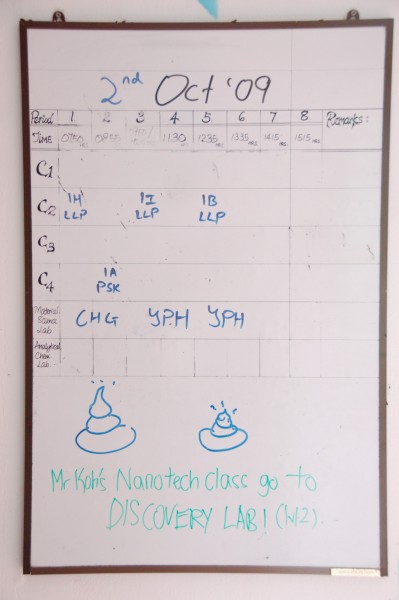 2nd Oct '09
Period 1 2 3 4 5 6 7 8 Remarks:
TIME 1130 1235 1335 1415 1515
C1
C2 1H LLP 1I LLP 1B LLP
C3
C4 1A PSK
Material Science Lab. CHG YPH YPH
Analytical Chem Lab.
Mr Koh's Nanotech class go to
DISCOVERY LAB 1 (lvl 2).